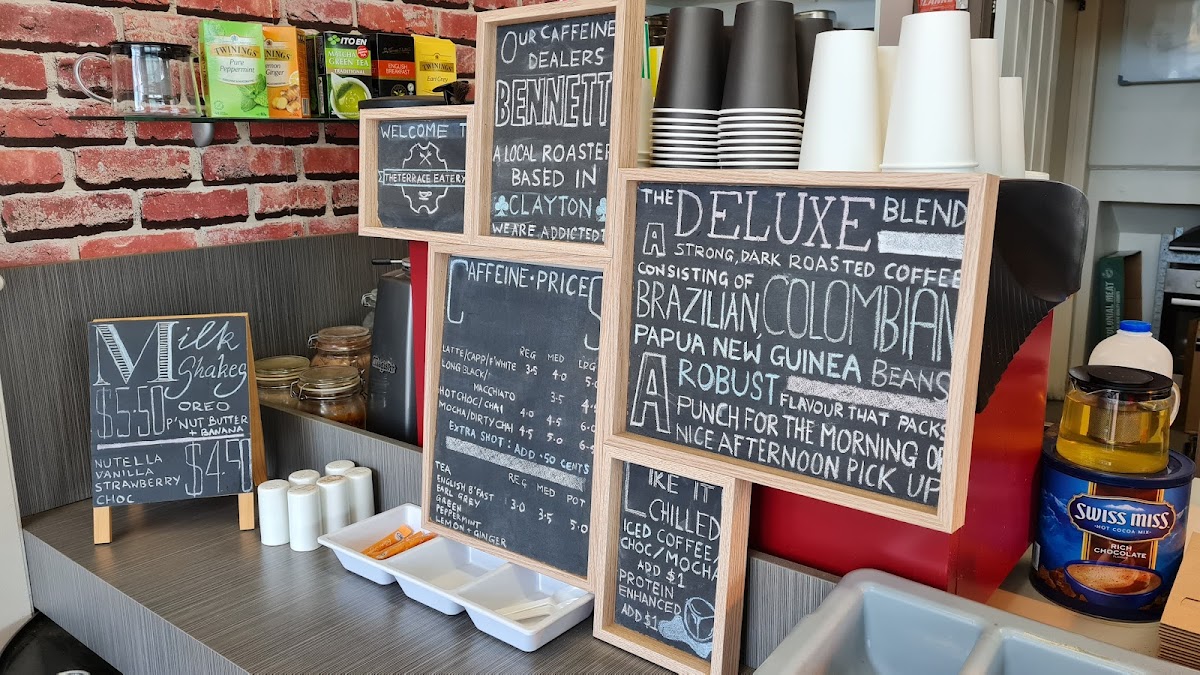 TWININGS
Pure
Peppermint
TWININGS
Lemon
Ginger
ITO EN
MATCHA
GREEN TEA
TRADITIONAL
ENGLISH
BREAKFAST
TWININGS
Earl Grey
WELCOME T
THE TERRACE EATERY
OUR CAFFEINE
DEALERS
BENNETT
A LOCAL ROASTER
BASED IN
CLAYTON
WE ARE ADDICTED
THE DELUXE BLEND
A STRONG, DARK ROASTED COFFEE
CONSISTING OF
BRAZILIAN, COLOMBIAN
PAPUA NEW GUINEA BEANS
A ROBUST FLAVOUR THAT PACKS
PUNCH FOR THE MORNING OR
NICE AFTERNOON PICK UP
CAFFEINE · PRICES
REG MED LDG
LATTE/CAPP/F'WHITE 3.5 4.0 5.0
LONG BLACK/
MACCHIATO 3.5 4.5
HOT CHOC/CHAI 4.0 4.5 5.0
MOCHA/DIRTY CHAI 4.5 5.0 6.0
EXTRA SHOT: ADD .50 CENTS
TEA REG MED POT
ENGLISH B'FAST
EARL GREY 3.0 3.5 5.0
GREEN
PEPPERMINT
LEMON + GINGER
LIKE IT
CHILLED
ICED COFFEE/
CHOC/MOCHA
ADD $1
PROTEIN
ENHANCED
ADD $1
Milk
Shakes
$5.50 OREO
P'NUT BUTTER
+ BANANA
NUTELLA
VANILLA
STRAWBERRY
CHOC
$4.9
SWISS MISS
HOT COCOA MIX
RICH
CHOCOLATE